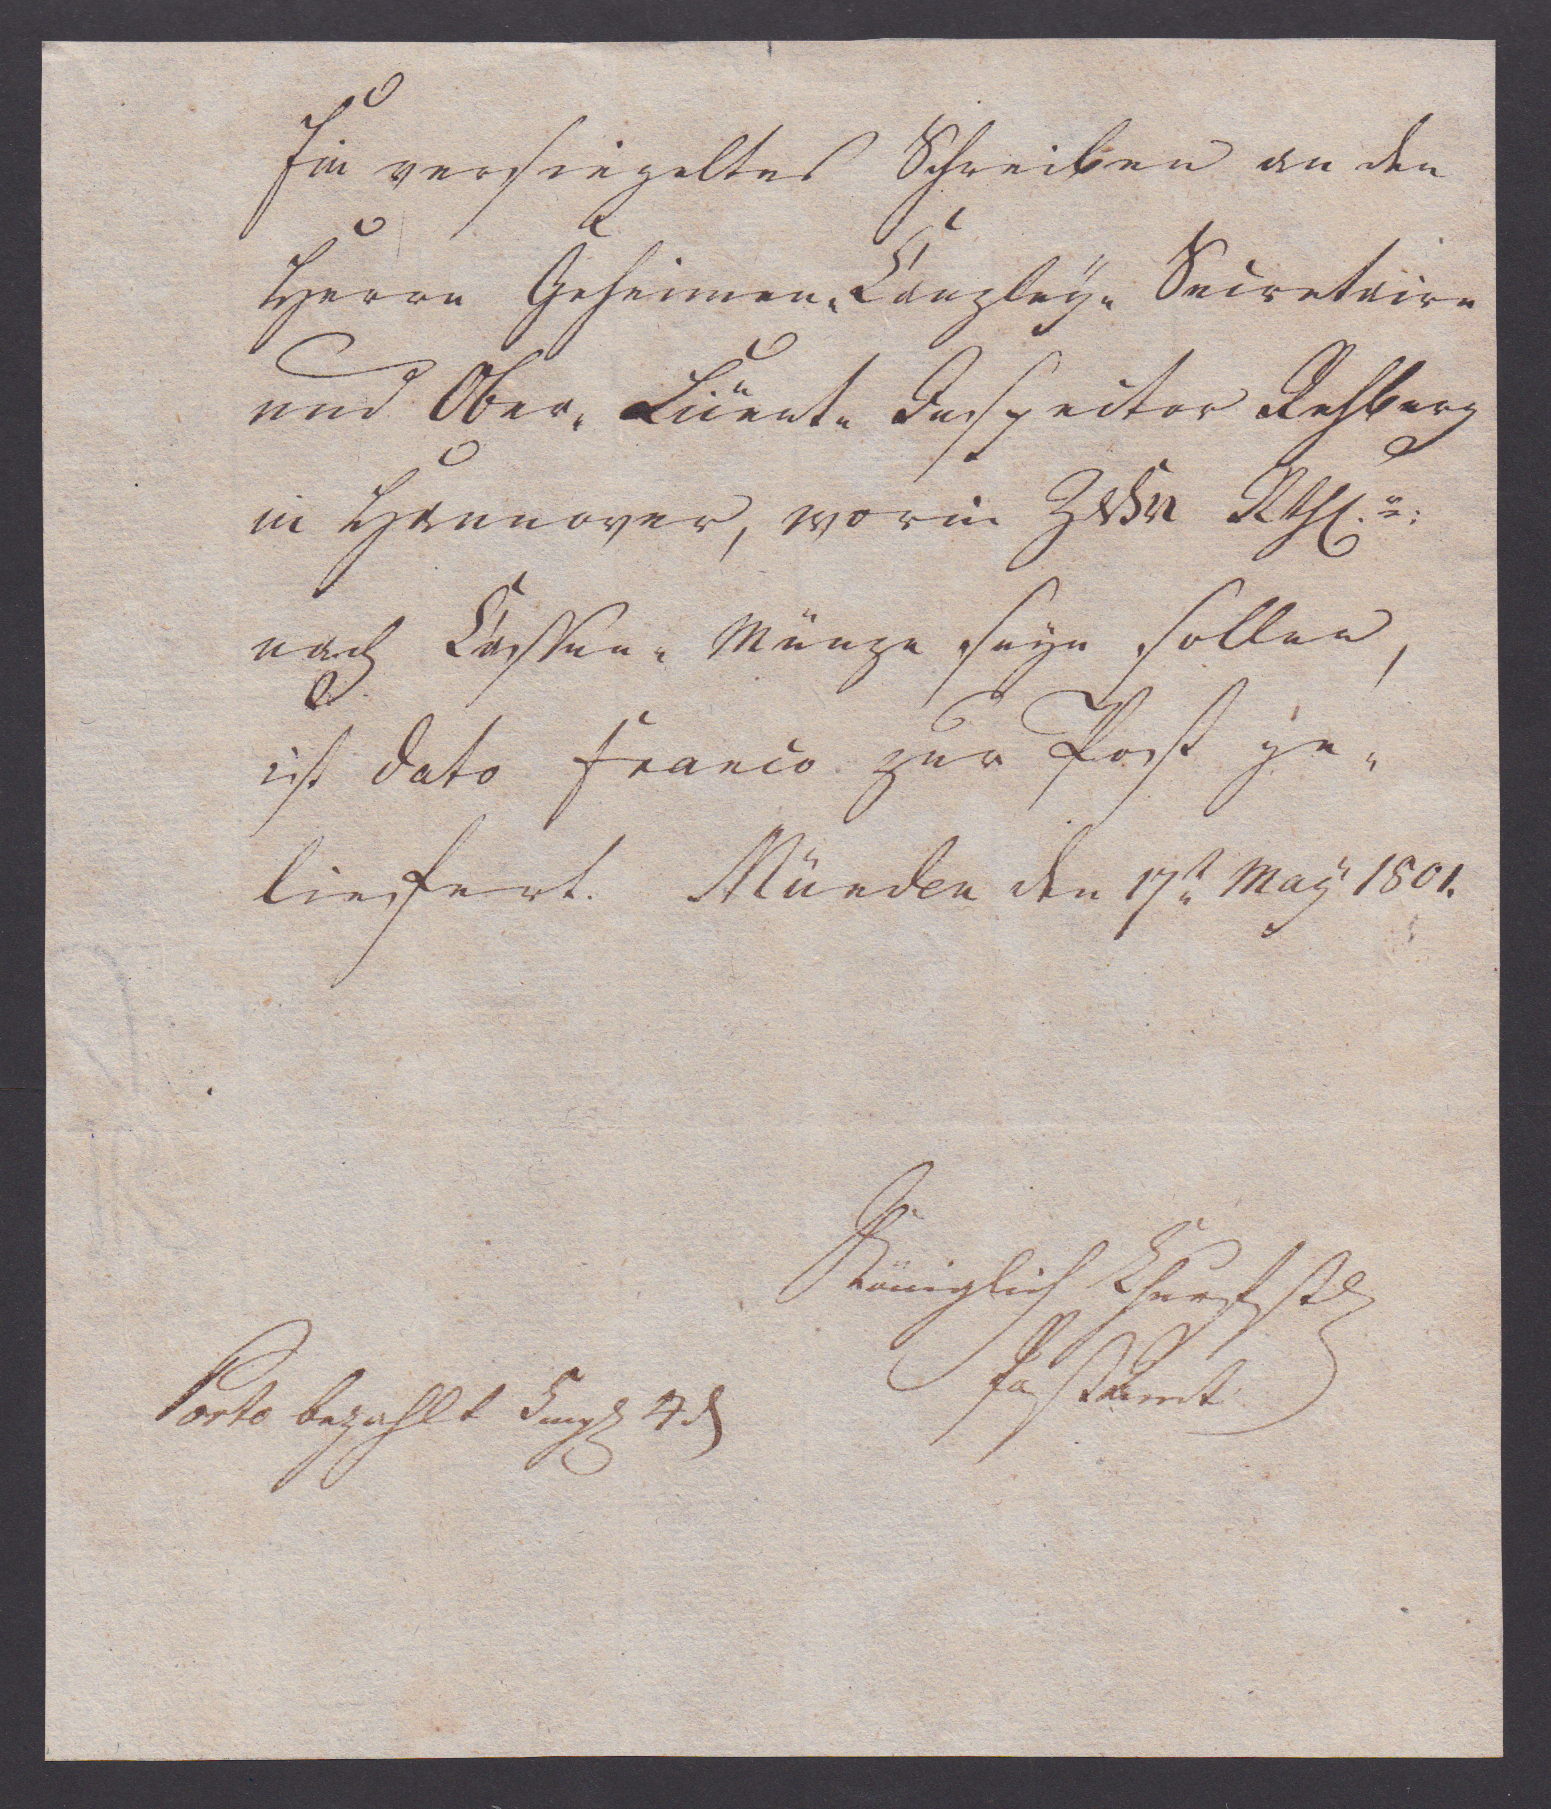 Ein versiegeltes Schreiben an den
Herrn Geheimen-Canzley-Secretaire
und Ober-Licent-Inspector Rehberg
in Hannover, worin Zehn Rthl.
nach Cassen-Münze seyn sollen,
ist dato franco zur Post ge-
liefert. Münden den 17t May 1801.
Königlich Churfstl
Postamt
Porto bezahlt 4 d